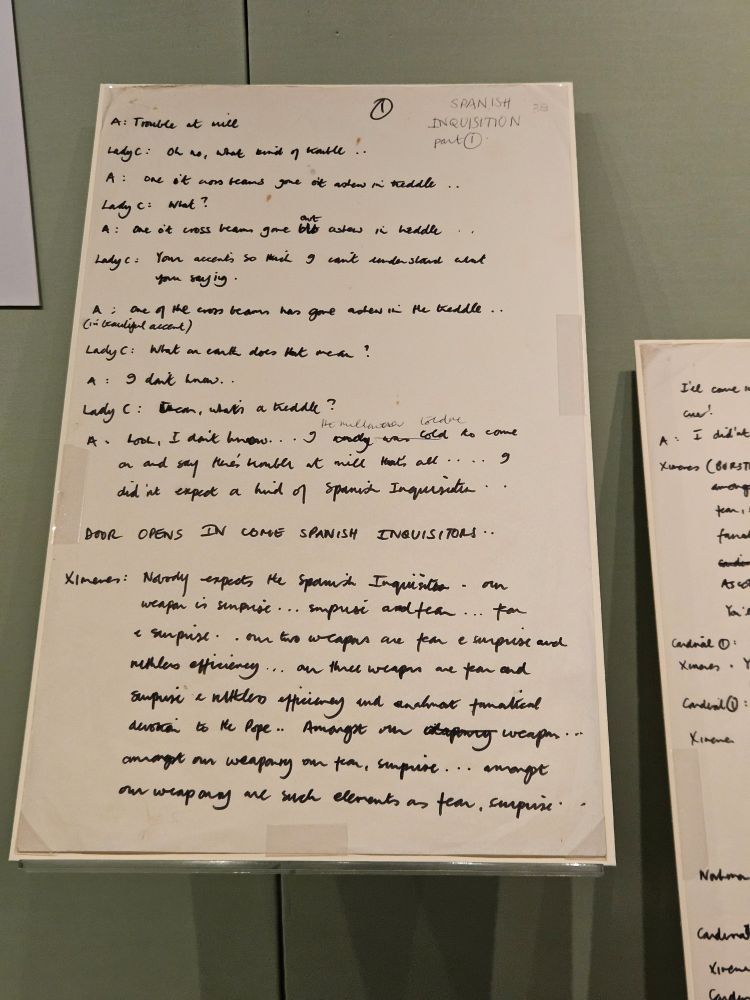 ①
SPANISH
INQUISITION
part ①.
A: Trouble at mill
Lady C: Oh no, what kind of trouble ..
A: one o't cross beams gone o't askew in treddle ..
Lady C: What?
A: One o't cross beams gone out askew in treddle ..
Lady C: Your accents so thick I can't understand what
your saying.
A: One of the cross beams has gone askew in the treddle ..
(in beautiful accent)
Lady C: What on earth does that mean?
A: I don't know..
Lady C: mean, what's a treddle?
the millowner told me
A. Look, I don't know... I was told to come
on and say there's trouble at mill that's all .... I
did'nt expect a kind of Spanish Inquisition ..
DOOR OPENS IN COME SPANISH INQUISITORS..
Ximenes: Nobody expects the Spanish Inquisition . our
weapon is surprise... surprise and fear ... fear
& surprise. . our two weapons are fear & surprise and
ruthless efficiency... our three weapons are fear and
surprise & ruthless efficiency and an almost fanatical
devotion to the Pope.. Amongst our weaponry weapon...
amongst our weaponry our fear, surprise... amongst
our weaponry are such elements as fear, surprise. ..
I'll come
A: I did'nt
Ximenes (BURST
amongst
fear,
You'
Cardinal ①:
Ximenes. Y
Cardinal ①:
Ximenes
Cardinal
Ximenes
Cardinal